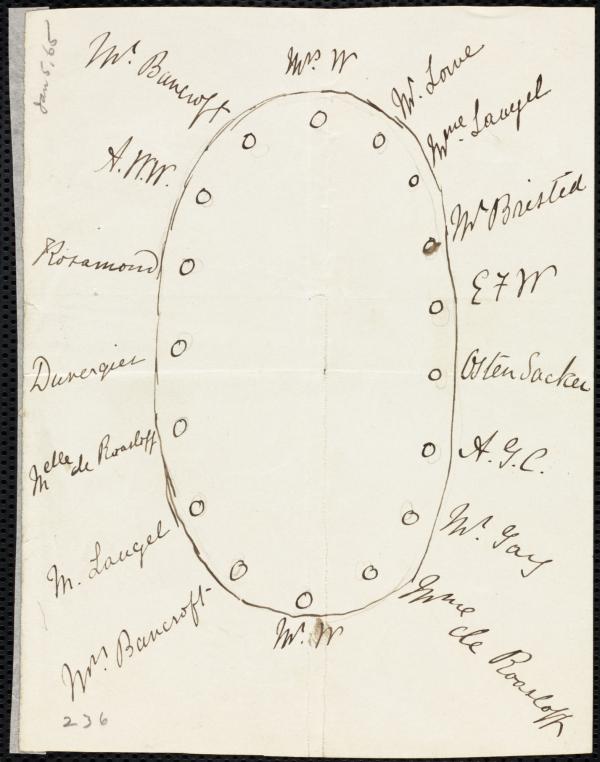 Jan 5, 65
Mrs W
Mr. Lowe
Mme. Laugel
Mr Bristed
E F W
Osten Sacken
A. G. C.
Mr. Gay
Mme
de Raasloff
Mr. W
Mrs. Bancroft
M. Laugel
Melle de Raasloff
Duvergier
Rosamond
A. W. W.
Mr. Bancroft
236